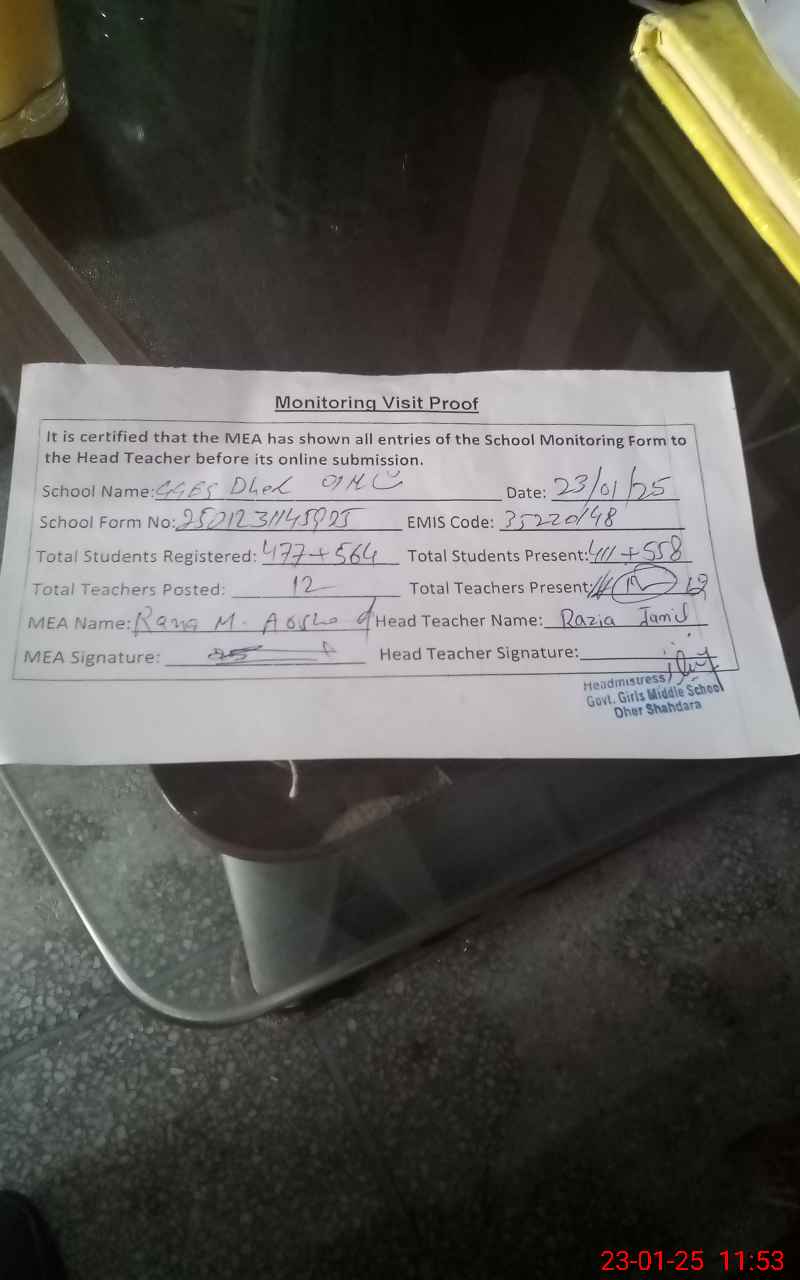 Monitoring Visit Proof
It is certified that the MEA has shown all entries of the School Monitoring Form to
the Head Teacher before its online submission.
School Name: Date: 23/01/25
School Form No: EMIS Code: 35220148
Total Students Registered: 477+564 Total Students Present: 411+558
Total Teachers Posted: 12 Total Teachers Present: 12
MEA Name: Rana M. Head Teacher Name: Razia Jamil
MEA Signature: Head Teacher Signature:
Headmistress
Govt. Girls Middle School
Dher Shahdara
23-01-25 11:53